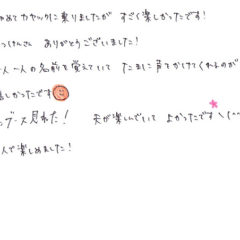 めてカヤックに乗りましたが すごく楽しかったです!
っけんさん ありがとうございました!
一人一人の名前を覚えていて たまに声をかけてくれるのが
しかったです
ブース見れた!
夫が楽しんでいて よかったです
人で楽しめました!